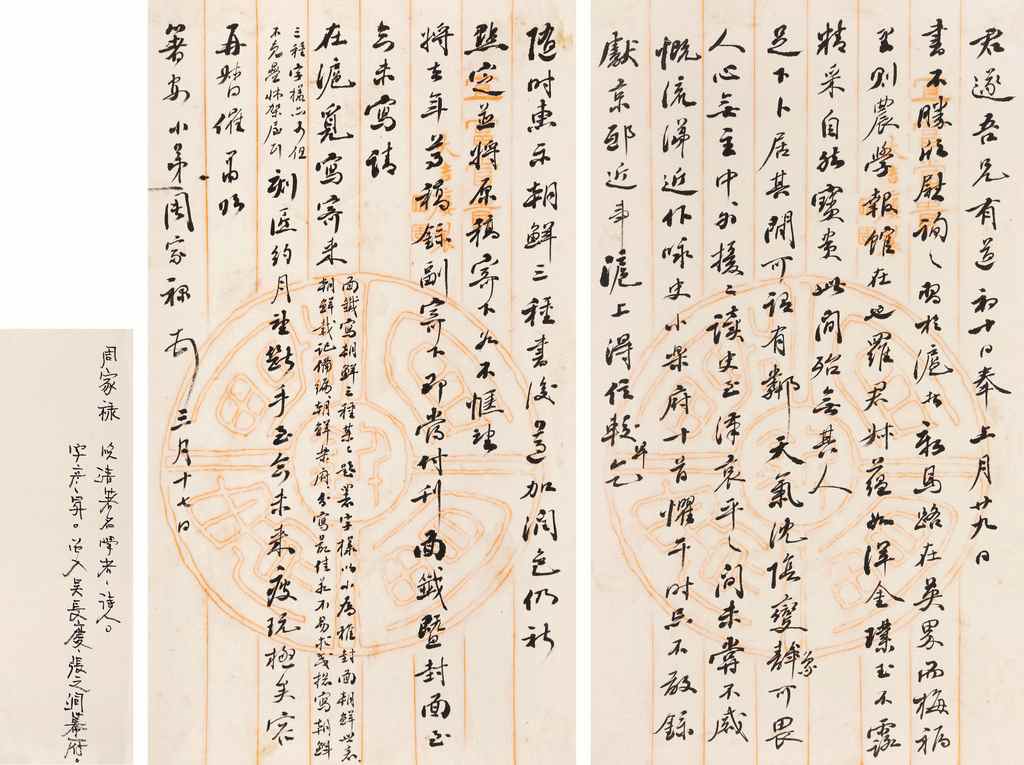 君遂吾兄有道初十日奉上月廿九日
書不勝欣慰詢之習於滬者新馬路在英界而梅福
里則農學報館在也羅君妹蘊如渾金璞玉不露
精采自然寶貴此間殆無其人
足下卜居其間可謂有鄰天氣沈陰變辭可畏
人心無主中外擾之讀史至漢哀平之間未嘗不感
慨流涕近作咏史小樂府十首懼干時忌不敢錄
獻京邸近事滬上得信較乞
隨時惠示朝鮮三種書後過加潤色仍祈
點定並將原稿寄下不憾
將去年弟稿錄副寄下即當付刊面籤暨封面至
今未寫請
在滬覓寫寄來
面籤寫朝鮮三種某某題署字樣以小為雅封面朝鮮世表
朝鮮載記備編朝鮮樂府分寫最佳若不易求或摠寫朝鮮
三種字樣亦可但
不免疊牀架屋耳
刻匠約月望斷手至今未來疲玩極矣容
再貽催肅頌
箸安小弟周家祿頓首三月十七日
周家祿
晚清著名學者、詩人。
字彥昇。曾入吳長慶、張之洞幕府。